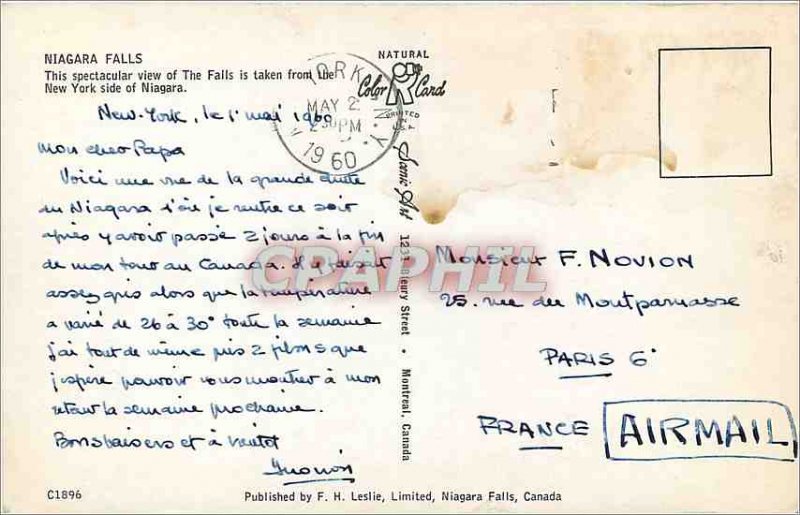 NIAGARA FALLS
This spectacular view of The Falls is taken from the
New York side of Niagara.
NATURAL
Color Card
PRINTED
IN
U.S.A.
YORK N.Y.
MAY 2
2 30 PM
1960
New-York, le 1° mai 1960
Mon cher Papa
Voici une vue de la grande chute
du Niagara d'où je rentre ce soir
après y avoir passé 2 jours à la fin
de mon tour au Canada. Il y faisait
assez gris alors que la température
a varié de 26 à 30° toute la semaine
j'ai tout de même pris 2 films que
j'espère pouvoir vous montrer à mon
retour la semaine prochaine.
Bons baisers et à bientôt
Scenic Art 1231 Bleury Street • Montreal, Canada
CPAPHIL
Monsieur F. NOVION
25. rue du Montparnasse
PARIS 6°
FRANCE
AIRMAIL
C1896
Published by F. H. Leslie, Limited, Niagara Falls, Canada